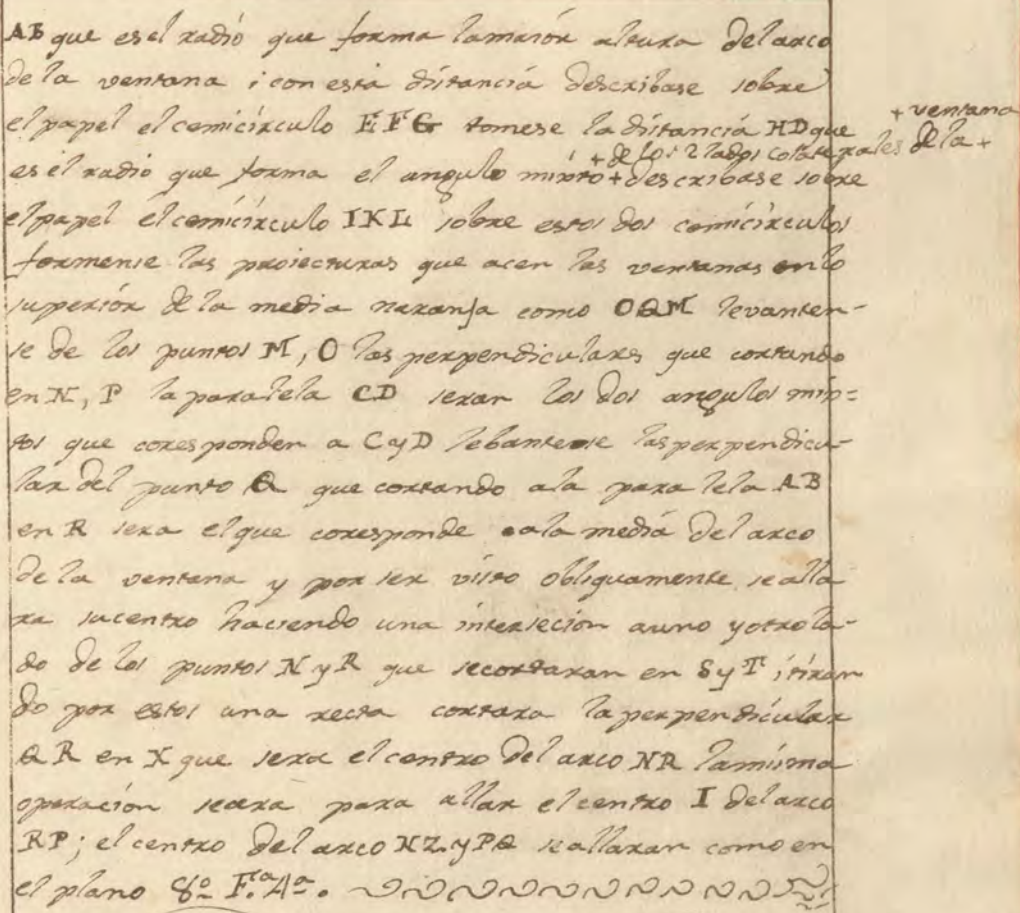 AB que es el radio que forma la maior altura del arco
de la ventana i con esta distancia describase sobre
el papel el cemicirculo EFG tomese la distancia HD que
+ ventana
+ de los 2 lados colaterales de la +
es el radio que forma el angulo mixto + describase sobre
el papel el cemicirculo IKL sobre estos dos cemicirculos
formense las proiecturas que acen las ventanas en lo
superior de la media naranja como OQM levanten-
se de los puntos M, O las perpendiculares que cortando
en N, P la paralela CD seran los dos angulos mix=
tos que coresponden a C y D lebantese las perpendicu-
lar del punto Q que cortando ala paralela AB
en R sera el que coresponde ala media del arco
de la ventana y por ser visto obliquamente se alla-
ra su centro haciendo una interseción auno y otro la-
do de los puntos N y R que secortaran en S y T ; tiran
do por estos una recta cortara la perpendicular
QR en X que sera el centro del arco NR la misma
operación seara para allar el centro I del arco
RP; el centro del arco NZ y PQ se allaran como en
el plano 8º F.ª 4ª.